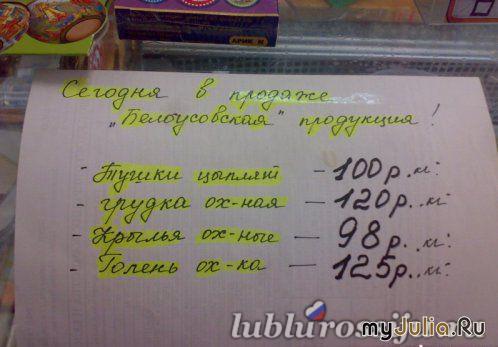 АРИК К
Сегодня в продаже
"Белоусовская" продукция!
- Тушки цыплят - 100 р.
- грудка ох-ная - 120 р.
- Крылья ох-ные - 98 р.
- Голень ох-ка - 125 р.
lublurossiju.ru
myJulia.Ru